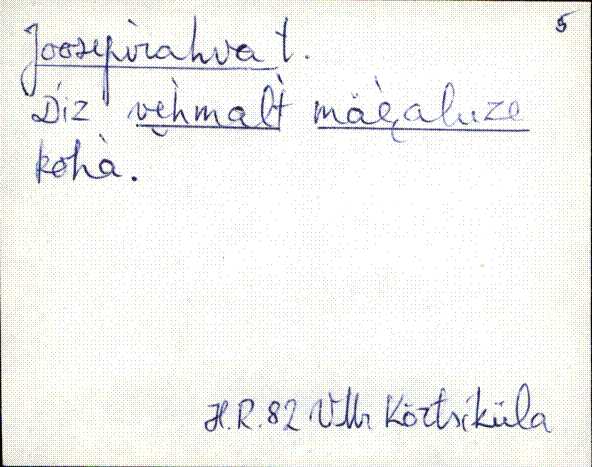 5
Joosepirahva t.
Diz vèhmalt mäealuze
kohà.
H.R. 82 VMr Kõrtsiküla